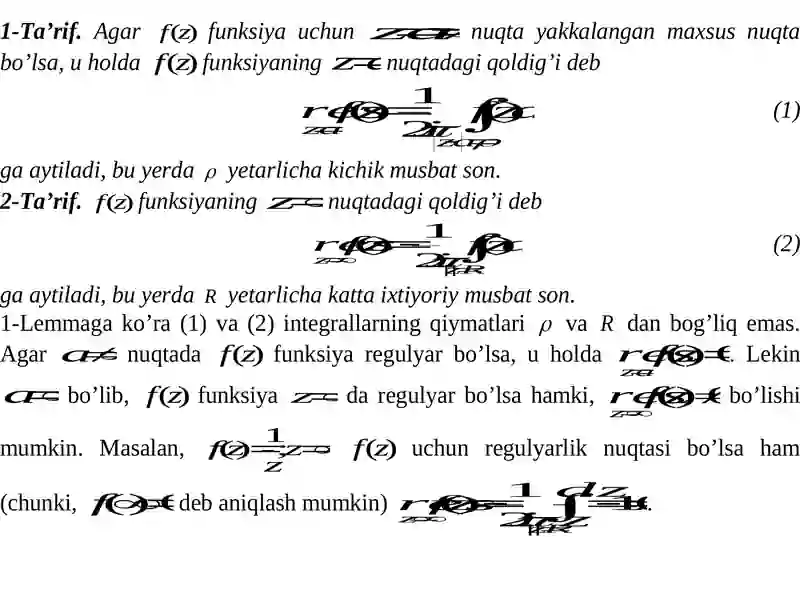 1-Ta’rif. Agar f(z) funksiya uchun nuqta yakkalangan maxsus nuqta
bo’lsa, u holda f(z) funksiyaning nuqtadagi qoldig’i deb
(1)
ga aytiladi, bu yerda ρ yetarlicha kichik musbat son.
2-Ta’rif. f(z) funksiyaning nuqtadagi qoldig’i deb
(2)
ga aytiladi, bu yerda R yetarlicha katta ixtiyoriy musbat son.
1-Lemmaga ko’ra (1) va (2) integrallarning qiymatlari ρ va R dan bog’liq emas.
Agar nuqtada f(z) funksiya regulyar bo’lsa, u holda . Lekin
bo’lib, f(z) funksiya da regulyar bo’lsa hamki, bo’lishi
mumkin. Masalan, f(z) uchun regulyarlik nuqtasi bo’lsa ham
(chunki, deb aniqlash mumkin) .